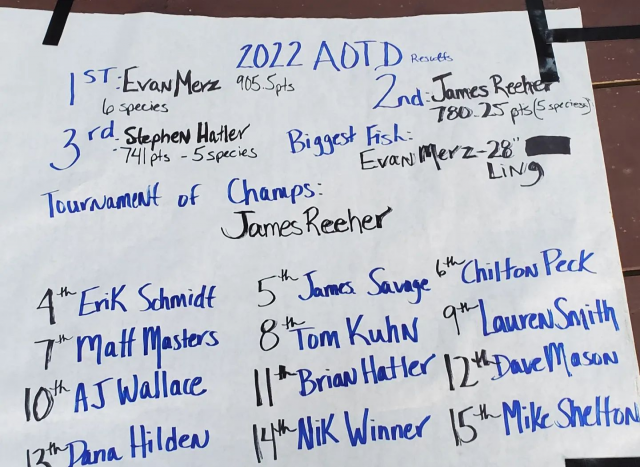 2022 AOTD Results
1ST: Evan Merz 905.5pts
6 species
2nd: James Reeher
780.25 pts (5 species)
3rd. Stephen Hatler
741pts - 5 species
Biggest Fish:
Evan Merz - 28"
Ling
Tournament of Champs:
James Reeher
4th Erik Schmidt 5th James Savage 6th Chilton Peck
7th Matt Masters 8th Tom Kuhn 9th Lauren Smith
10th AJ Wallace 11th Brian Hatler 12th Dave Mason
13th Dana Hilden 14th Nik Winner 15th Mike Shelton